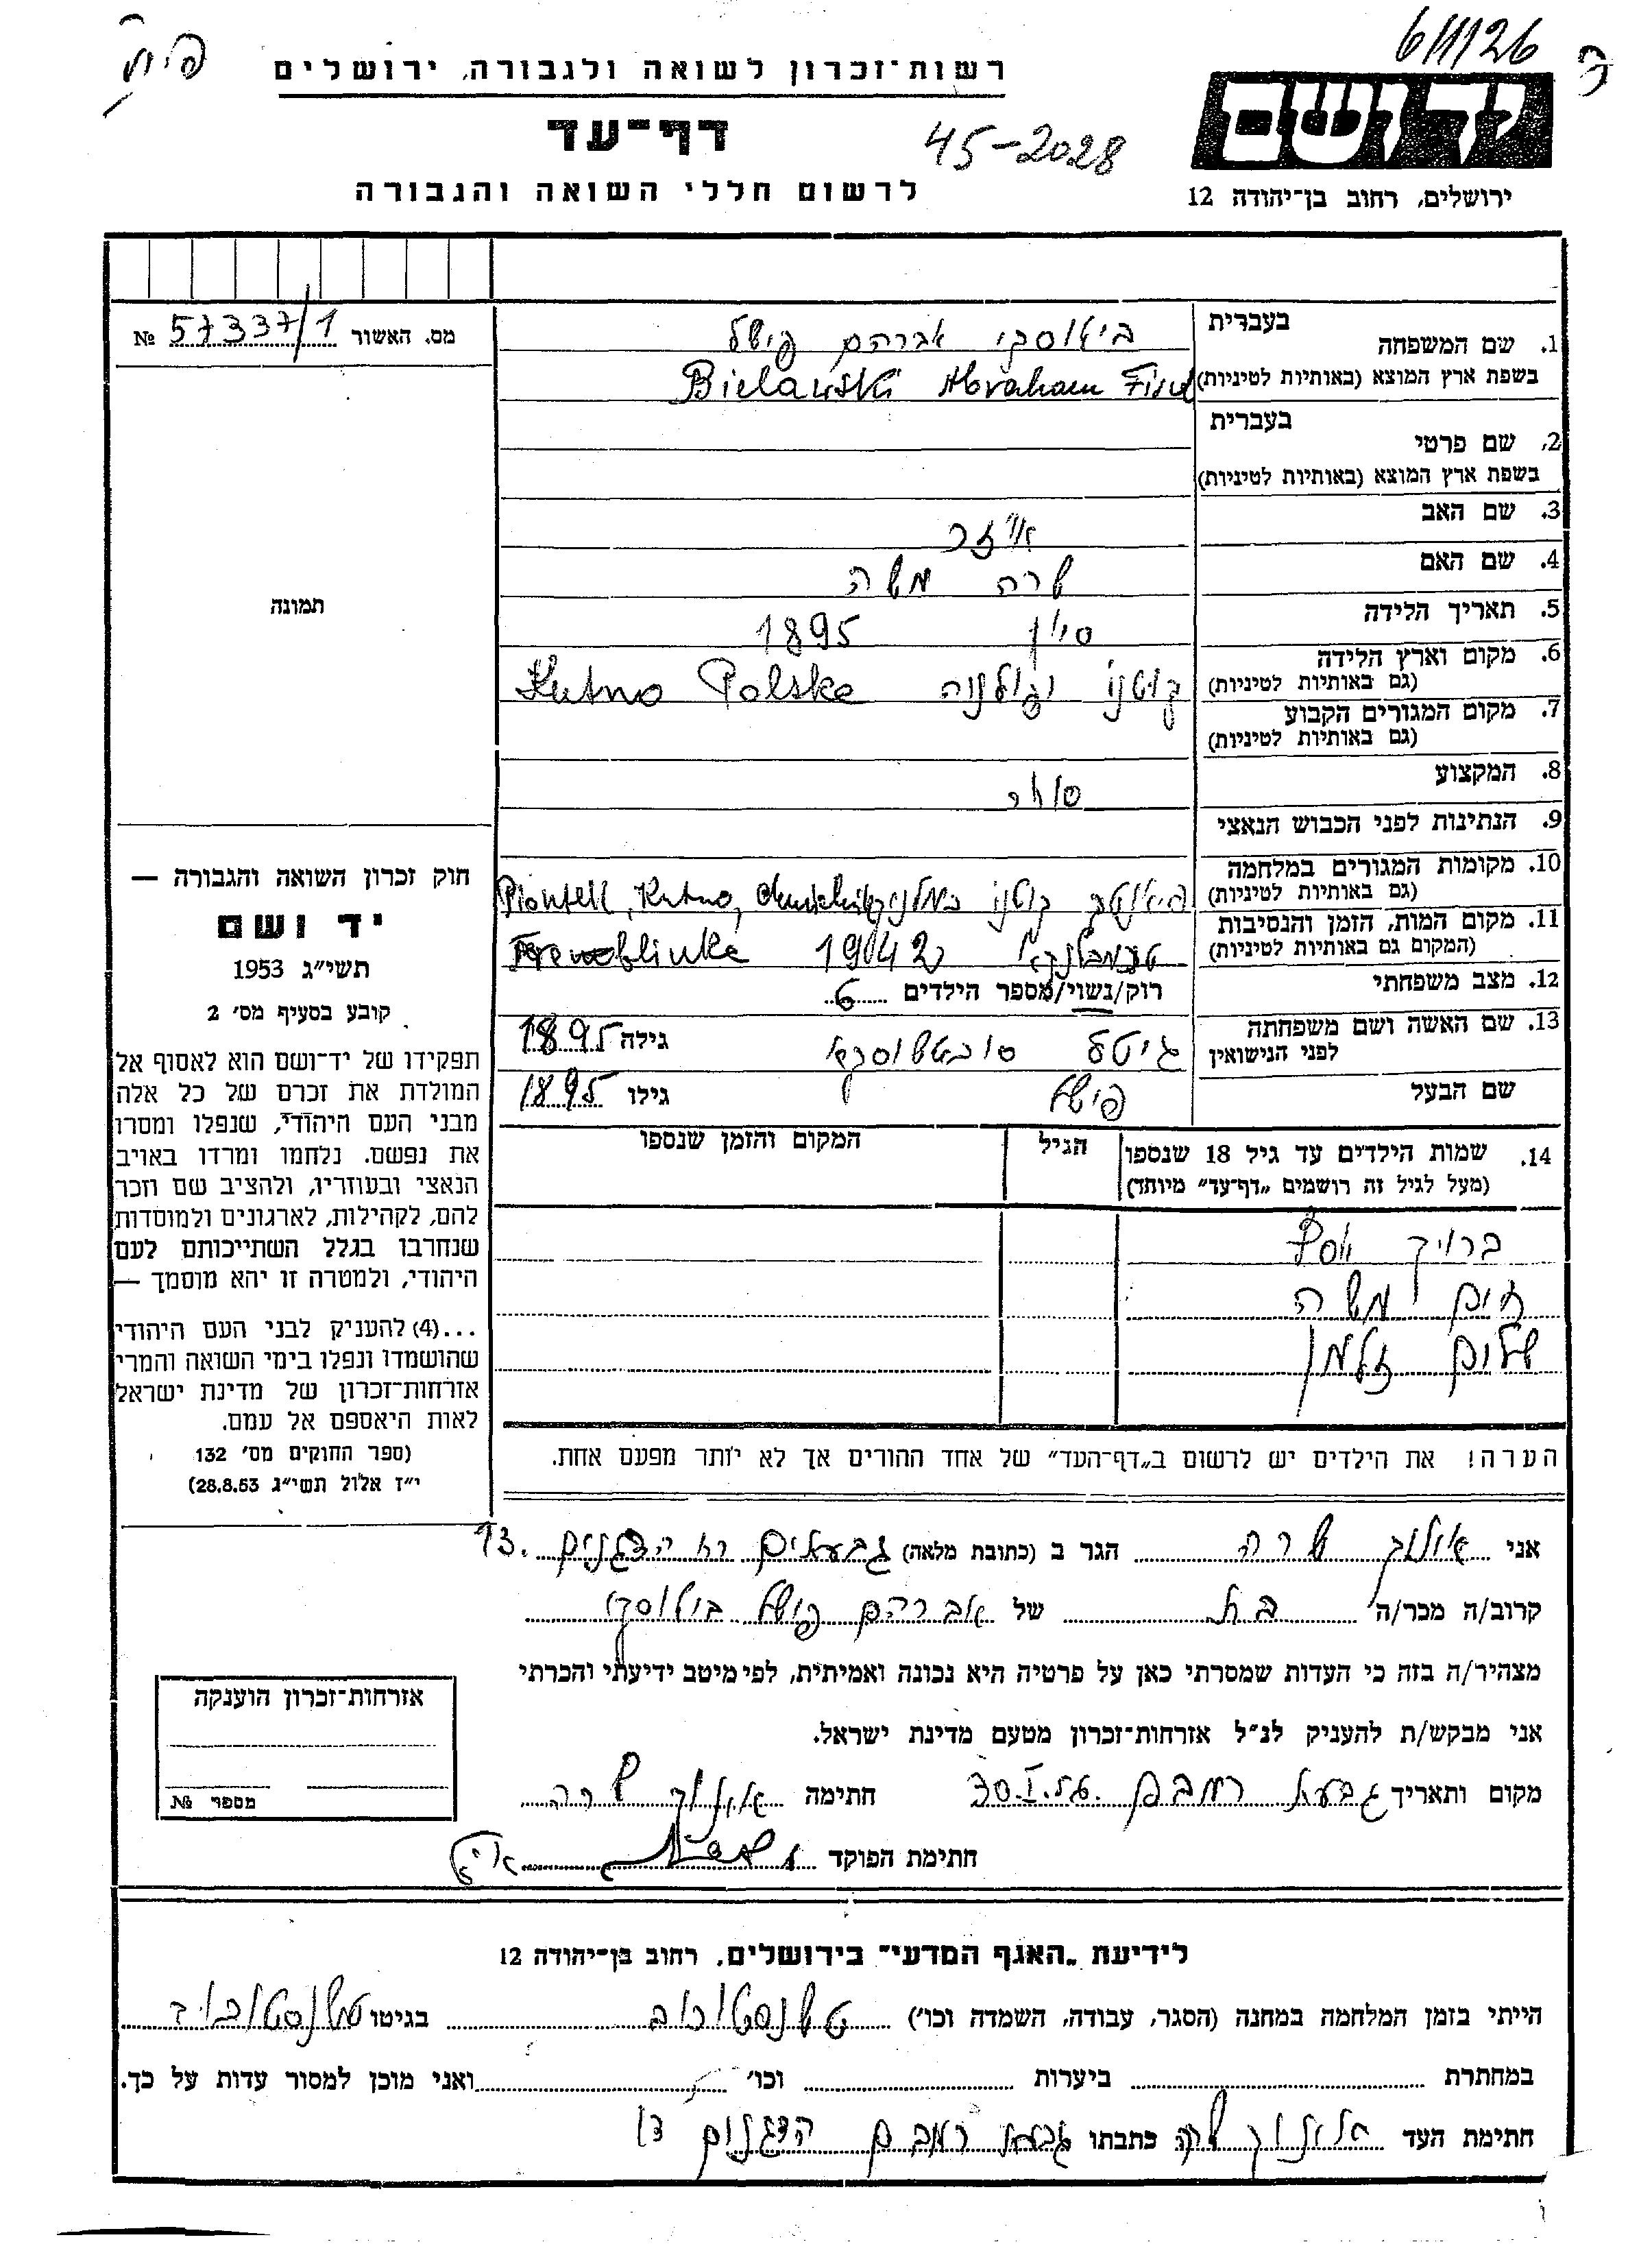 6/11/26
פ
יד ושם
ירושלים, רחוב בן־יהודה 12
רשות־זכרון לשואה ולגבורה, ירושלים
דף־עד
45-2028
לרשום חללי השואה והגבורה
מס. האשור 57337/1 №
תמונה
חוק זכרון השואה והגבורה —
יד ושם
תשי״ג 1953
קובע בסעיף מס׳ 2
תפקידו של יד־ושם הוא לאסוף אל
המולדת את זכרם של כל אלה
מבני העם היהודי, שנפלו ומסרו
את נפשם. נלחמו ומרדו באויב
הנאצי ובעוזריו, ולהציב שם וזכר
להם, לקהילות, לארגונים ולמוסדות
שנחרבו בגלל השתייכותם לעם
היהודי, ולמטרה זו יהא מוסמך —
...(4) להעניק לבני העם היהודי
שהושמדו ונפלו בימי השואה והמרי
אזרחות־זכרון של מדינת ישראל
לאות היאספם אל עמם.
(ספר החוקים מס׳ 132
י״ז אלול תשי״ג 28.8.53)
1. שם המשפחה בעברית אברהם פישל
בשפת ארץ המוצא (באותיות לטיניות) Bielawski Abraham
2. שם פרטי בעברית
בשפת ארץ המוצא (באותיות לטיניות)
3. שם האב
4. שם האם שרה משה
5. תאריך הלידה סיון 1895
6. מקום וארץ הלידה
(גם באותיות לטיניות) קוטנו Kutno Polska
7. מקום המגורים הקבוע
(גם באותיות לטיניות)
8. המקצוע סוחר
9. הנתינות לפני הכבוש הנאצי
10. מקומות המגורים במלחמה
(גם באותיות לטיניות) קוטנו Kutno,
11. מקום המות, הזמן והנסיבות
(המקום גם באותיות לטיניות) 1942
12. מצב משפחתי רוק/נשוי/מספר הילדים 6
13. שם האשה ושם משפחתה
לפני הנישואין גיטל גילה 1895
שם הבעל פישל גילו 1895
14. שמות הילדים עד גיל 18 שנספו הגיל המקום והזמן שנספו
(מעל לגיל זה רושמים „דף־עד״ מיוחד)
ברוך יוסף
חיים משה
שלום זלמן
הערה! את הילדים יש לרשום ב„דף־העד״ של אחד ההורים אך לא יותר מפעם אחת.
אני שרה הגר ב (כתובת מלאה) גבעתיים רח הדגנים 13.
קרוב/ה מכר/ה בת של אברהם פישל
מצהיר/ה בזה כי העדות שמסרתי כאן על פרטיה היא נכונה ואמיתית, לפי מיטב ידיעתי והכרתי
אני מבקש/ת להעניק לנ״ל אזרחות־זכרון מטעם מדינת ישראל.
מקום ותאריך גבעת רמבם 30.I.56. חתימה שרה
חתימת הפוקד
אזרחות־זכרון הוענקה
מספר №
לידיעת „האגף המדעי״ בירושלים, רחוב בן־יהודה 12
הייתי בזמן המלחמה במחנה (הסגר, עבודה, השמדה וכו׳) טשנסטוכוב בגיטו
במחתרת ביערות וכו׳ ואני מוכן למסור עדות על כך.
חתימת העד שרה כתבתו רמבם הדגנים 13